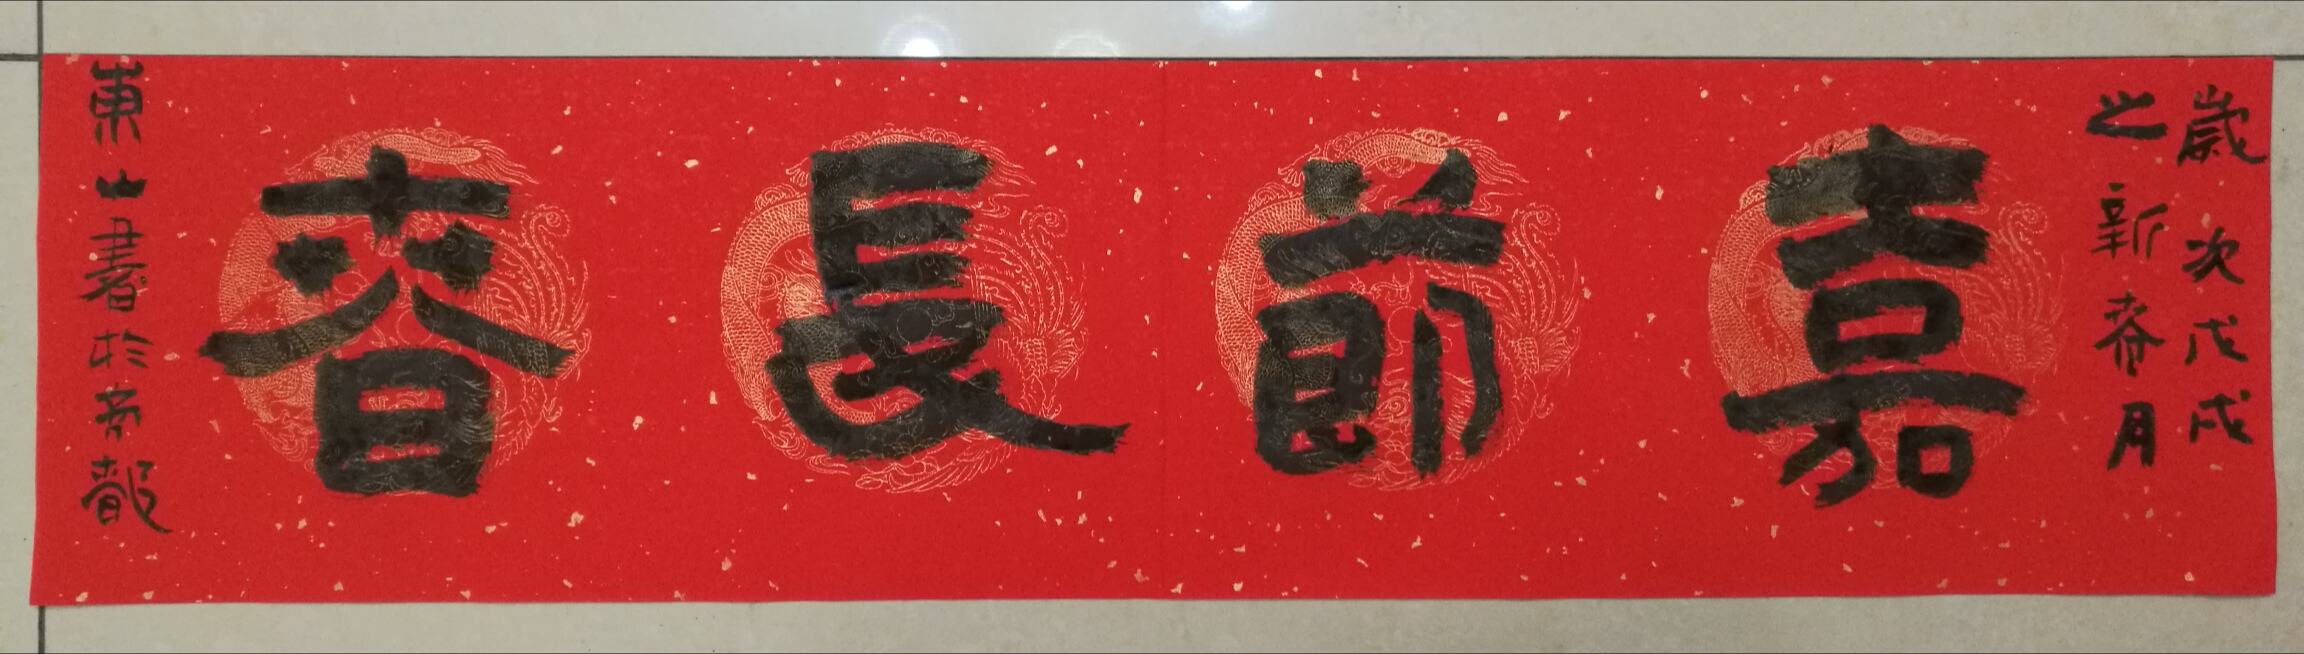 歲次戊戌
之新春月
嘉節長春
東山書於